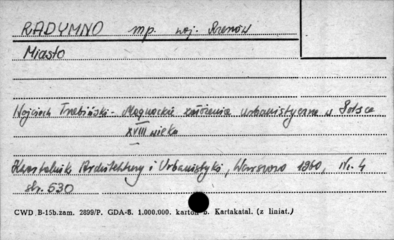 RADYMNO mp. woj. Rzeszów
Miasto
Wojciech Trzebiński - Magnackie założenia urbanistyczne w Polsce
XVIII wieku
Kwartalnik Architektury i Urbanistyki, Warszawa 1960, Nr. 4
str. 530
CWD B-15b.zam. 2899/P. GDA-S. 1.000.000. karton b. Kartakatal. (z liniat.)